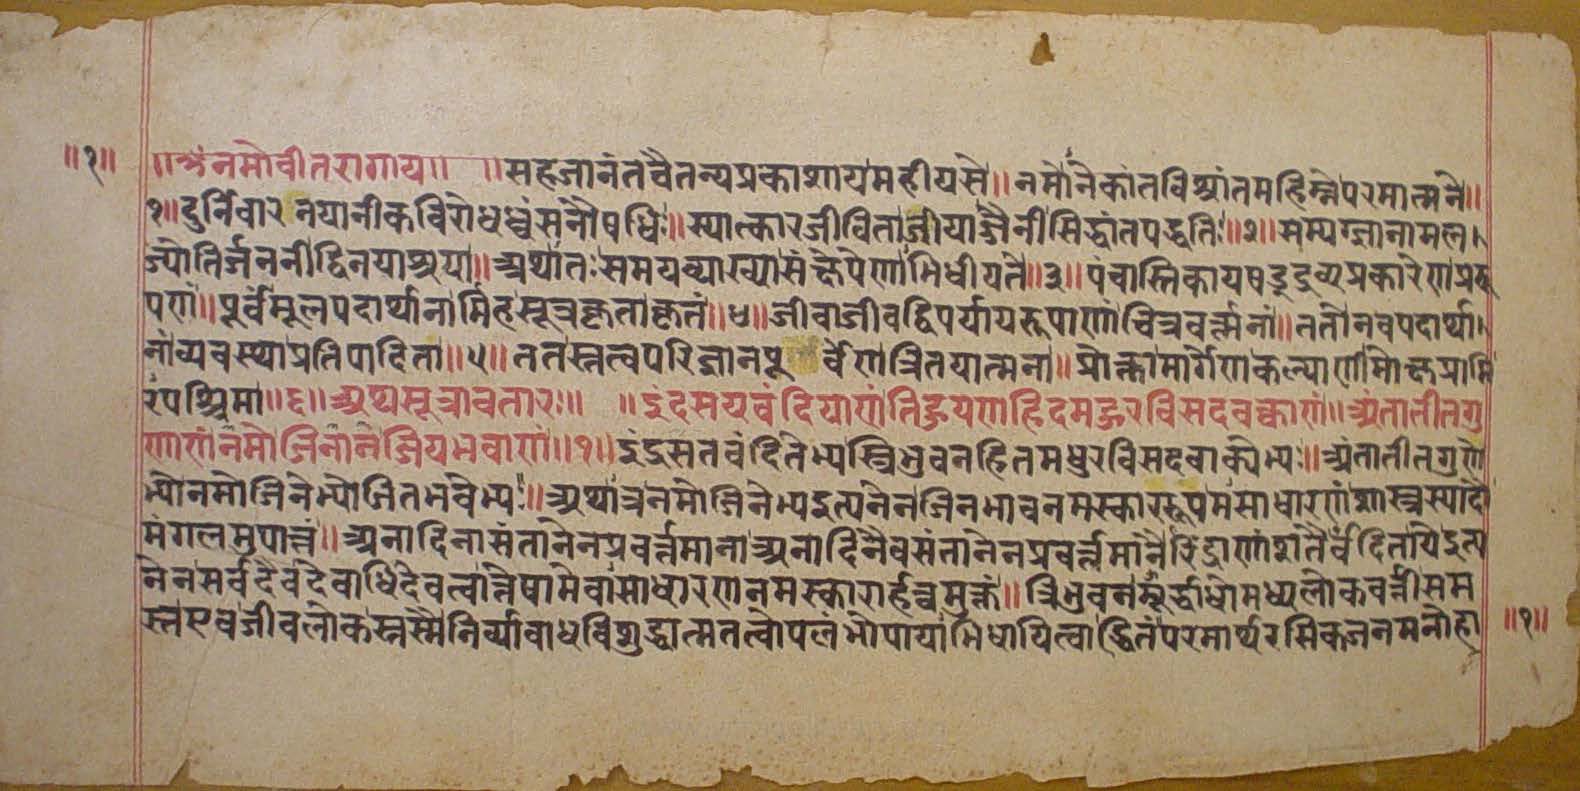 ॥१॥ ॥ॐनमोवीतरागाय॥ ॥सहजानंतचैतन्यप्रकाशायमहीयसे॥नमोनेकांतविश्रांतमहिम्नेपरमात्मने॥
१॥दुर्निवारनयानीकविरोधध्वंसनौषधिः॥स्यात्कारजीविताजीयाज्जैनीसिद्धांतपद्धतिः॥२॥सम्यग्ज्ञानामल।
ज्योतिर्जननीद्विनयाश्रया॥अथातःसमयव्याख्यासंक्षेपेणाभिधीयते॥३॥पंचास्तिकायषड्द्रव्यप्रकारेणप्ररू
पणं॥पूर्वंमूलपदार्थानामिहसूत्रकृताकृतं॥४॥जीवाजीवद्विपर्यायरूपाणांचित्रवर्त्मनां॥ततोनवपदार्था।
नांव्यवस्थाप्रतिपादिता॥५॥ततस्तत्वपरिज्ञानपूर्वेणत्रितयात्मना॥प्रोक्तामार्गेणकल्याणीमोक्षप्राप्ति
रंपश्चिमा॥६॥अथसूत्रावतारः॥ ॥इंदसयवंदियाणंतिहुयणहिदमहुरविसदवक्काणं॥अंतातीतगु
णाणंनमोजिनानंजियभवाणं॥१॥इंद्रसतवंदितेभ्यस्त्रिभुवनहितमधुरविसदवाक्येभ्यः॥अंतातीतगुणे
भ्योनमोजिनेभ्योजितभवेभ्यः॥अथात्रनमोजिनेभ्यइत्यनेनजिनभावनमस्काररूपमसाधारणंशास्त्रस्यादौ
मंगलमुपात्तं॥अनादिनासंतानेनप्रवर्त्तमानाअनादिनैवसंतानेनप्रवर्त्तमानैरिंद्राणांशतैर्वंदितायेइत्य
नेनसर्वदैवदेवाधिदेवत्वात्तेषामेवासाधारणनमस्कारार्हत्वमुक्तं॥त्रिभुवनमूर्द्धाधोमध्यलोकवर्त्तीसम
स्तएवजीवलोकस्तस्मैनिर्व्याबाधविशुद्धात्मतत्वोपलंभोपायाभिधायित्वाद्धितंपरमार्थरसिकजनमनोहा ॥१॥